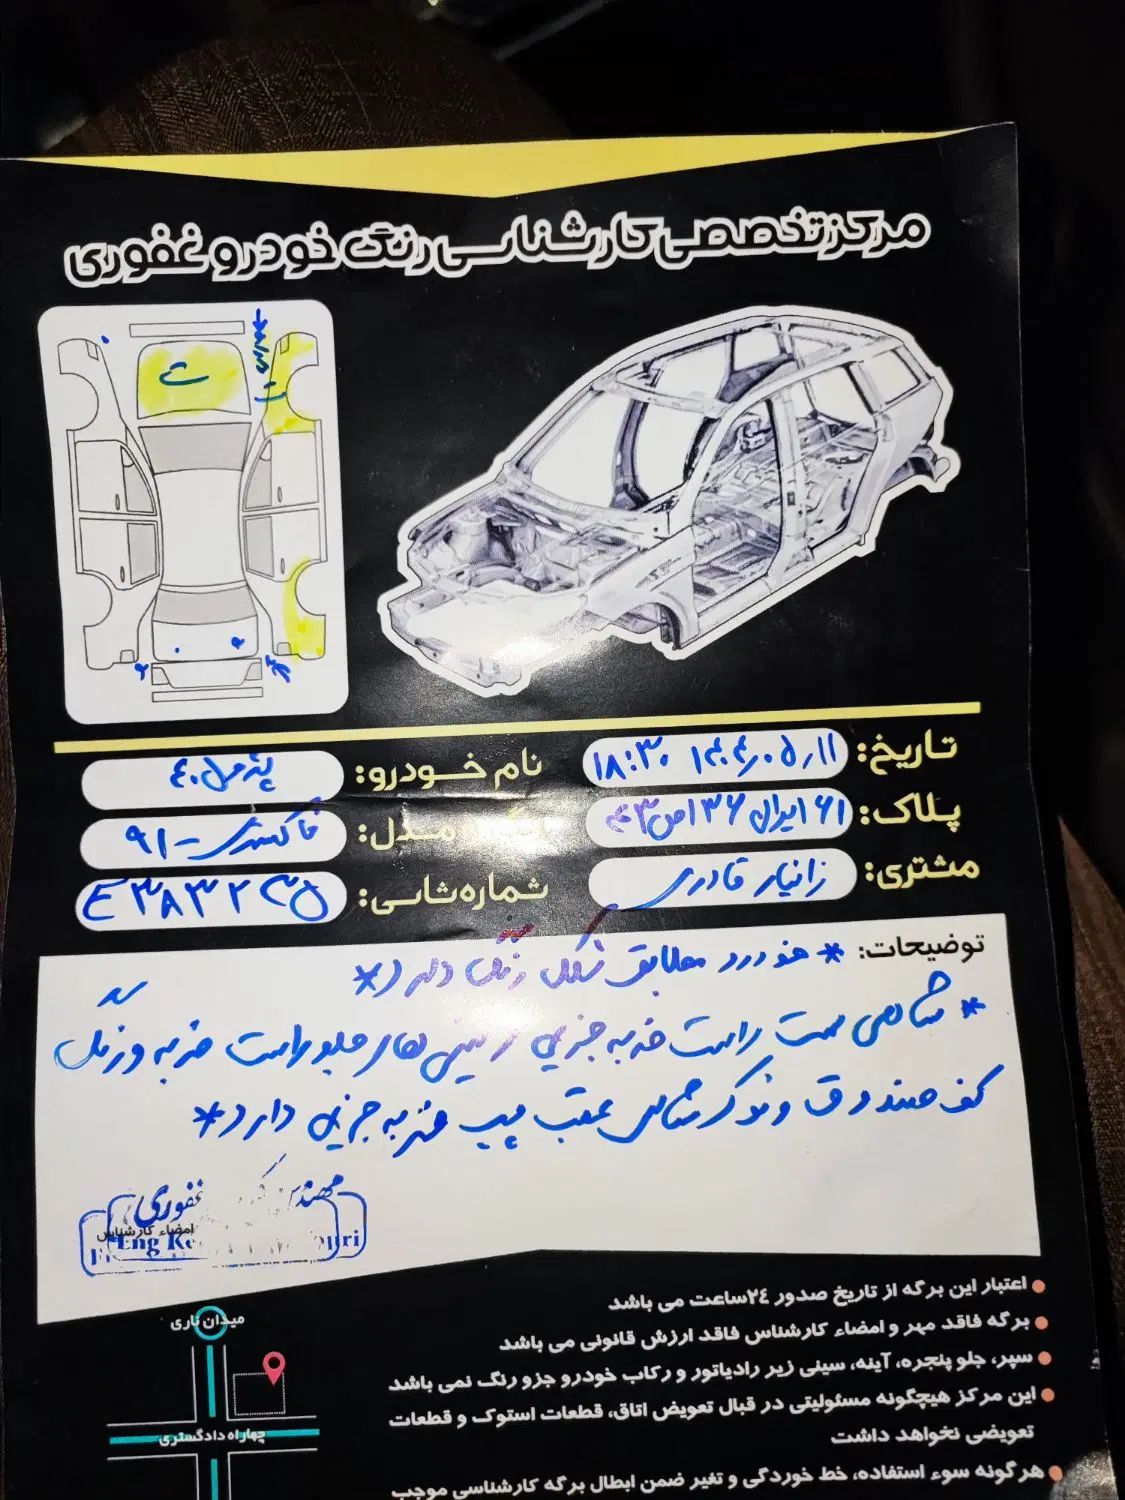 مرکز تخصصی کارشناسی رنگ خودرو غفوری
ت
تاریخ: ۱۴۰۴٫۰۵٫۱۱ ۱۸:۳۰
نام خودرو:
پلاک: ۶۱ ایران ۱۳۶ ص ۴۳
مدل: خاکستری - ۹۱
مشتری: زانیار قادری
شماره شاسی:
توضیحات: * خودرو مطابق شکل رنگ دارد *
* شاسی سمت راست ضربه جزیی سینی های جلو راست ضربه و رنگ
کف صندوق و نوک شاسی عقب چپ ضربه جزیی دارد *
غفوری
امضاء کارشناس
اعتبار این برگه از تاریخ صدور ۲۴ساعت می باشد
برگه فاقد مهر و امضاء کارشناس فاقد ارزش قانونی می باشد
سپر، جلو پنجره، آینه، سینی زیر رادیاتور و رکاب خودرو جزو رنگ نمی باشد
این مرکز هیچگونه مسئولیتی در قبال تعویض اتاق، قطعات استوک و قطعات
تعویضی نخواهد داشت
هرگونه سوء استفاده، خط خوردگی و تغیر ضمن ابطال برگه کارشناسی موجب
چهارراه دادگستری